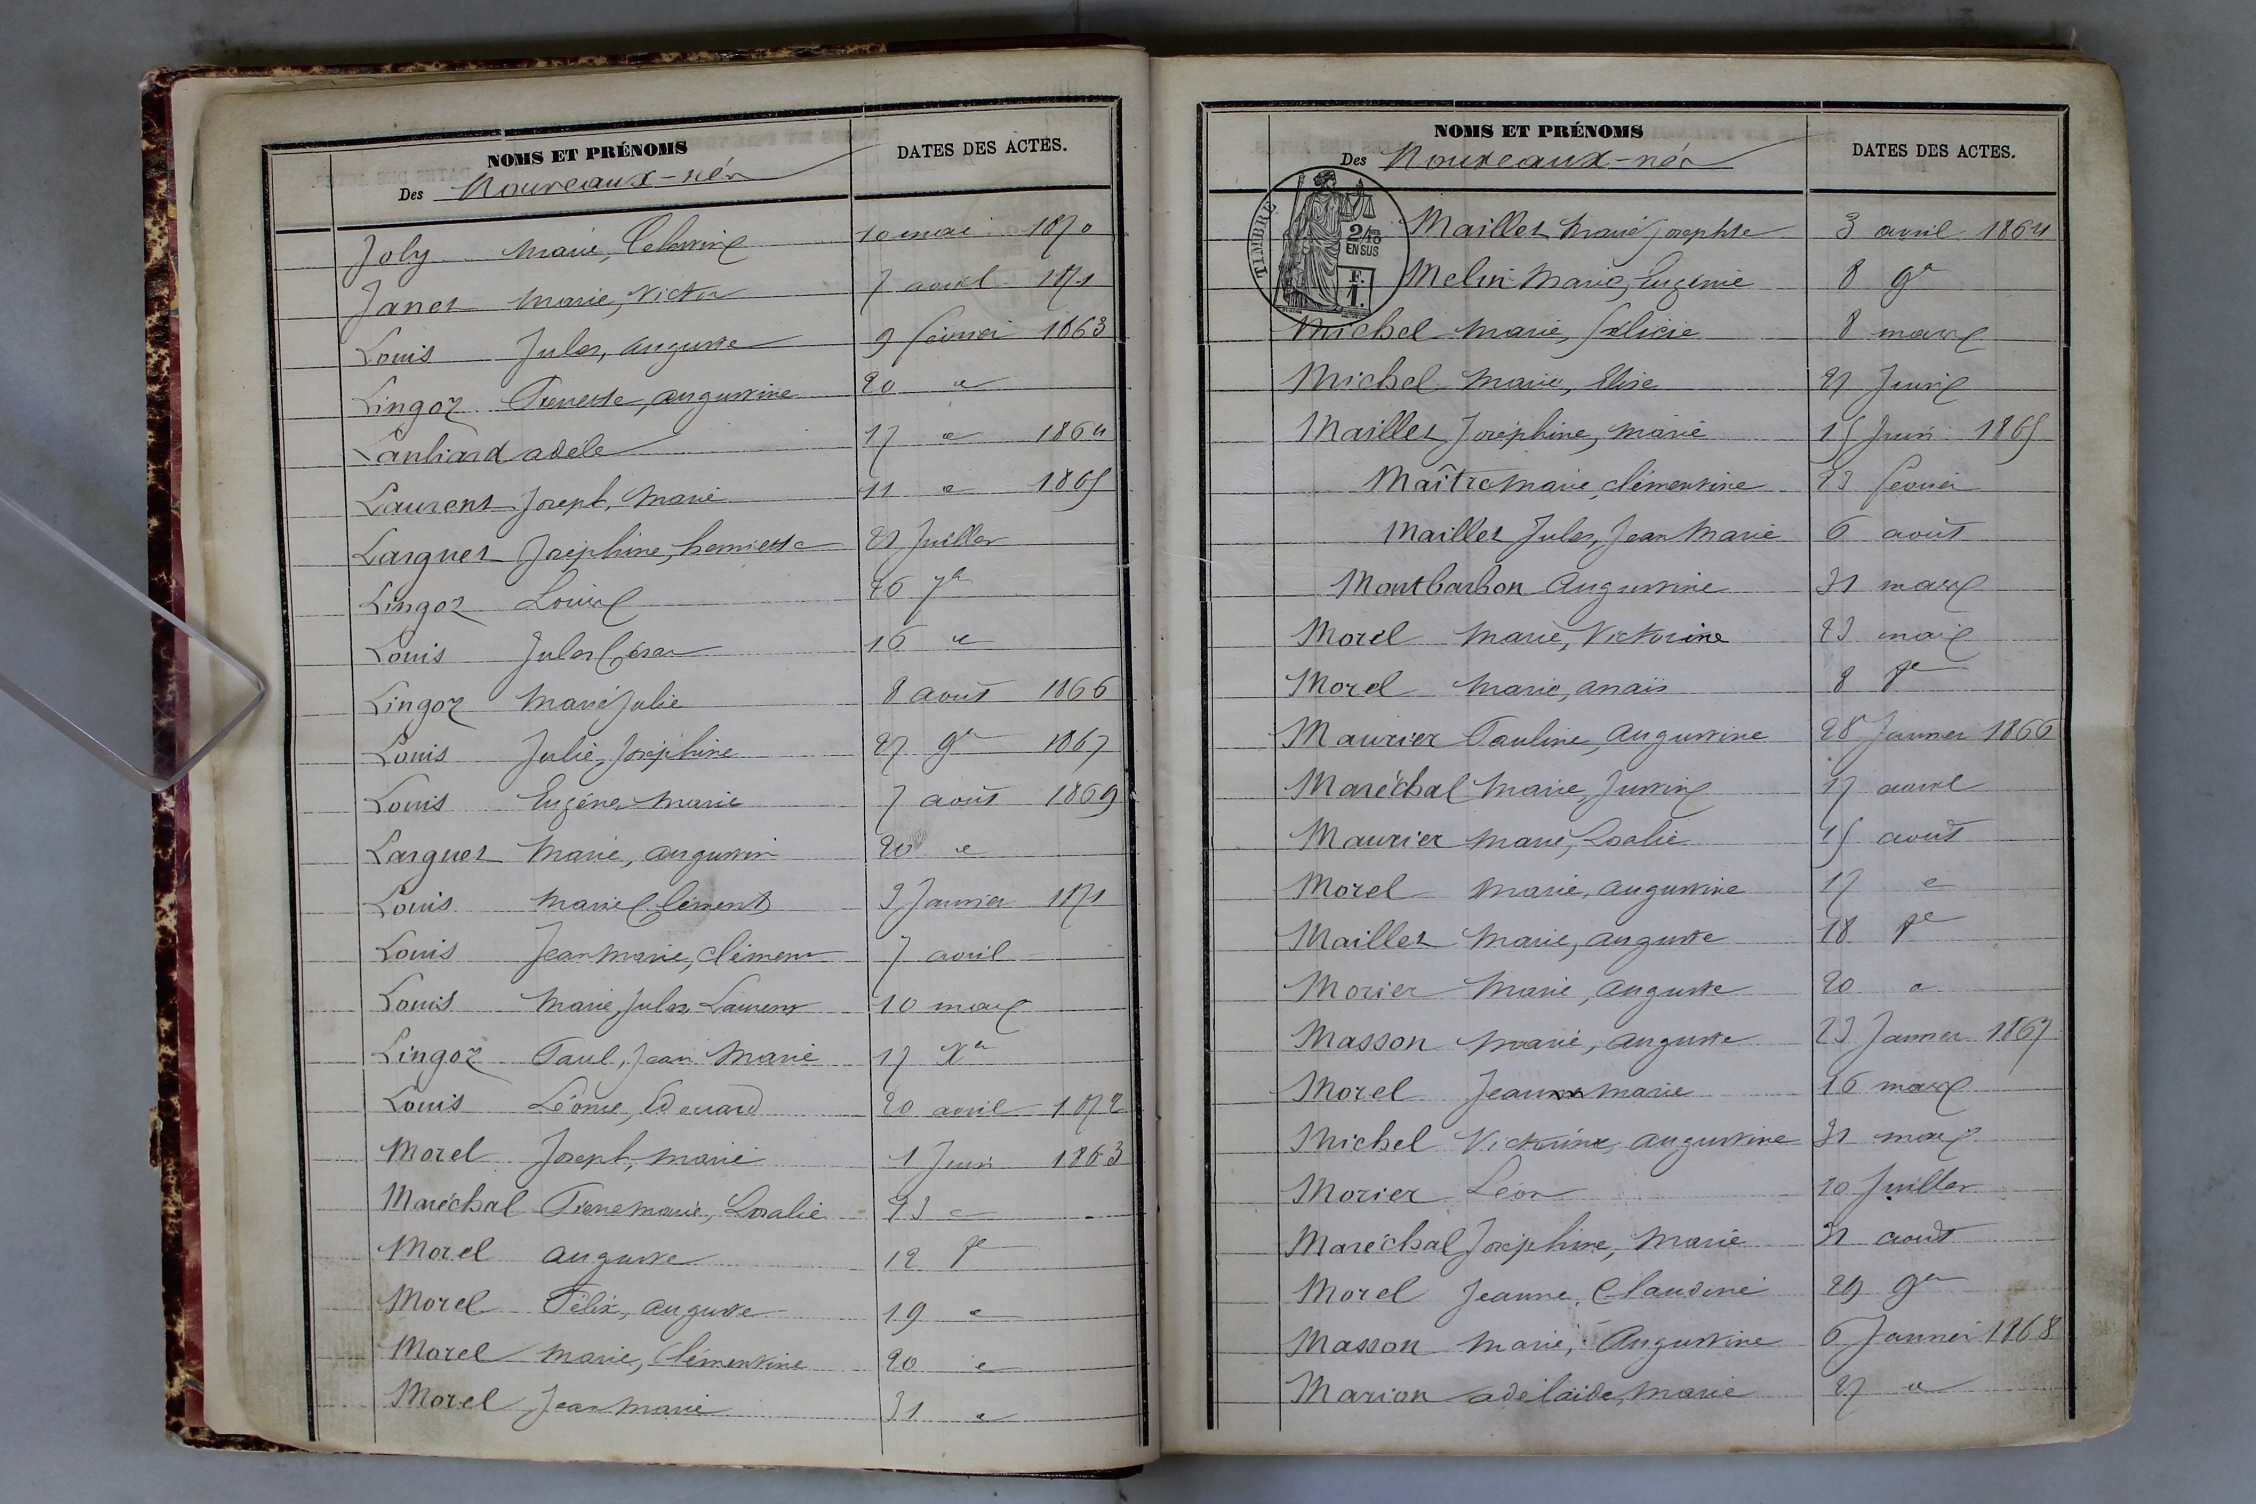 NOMS ET PRÉNOMS
Des Nouveaux-nés
DATES DES ACTES.
Joly Marie, Célestine 10 mai 1870
Janet Marie, Victor 7 avril 1871
Louis Jules, auguste 9 février 1863
Lingoz Pierrette, augustine 20 "
adèle 17 " 1864
Laurent Joseph, Marie 11 " 1865
Larguet Joséphine, henriette 21 Juillet
Lingoz Louise 26 7bre
Louis Jules César 16 "
Lingoz Marie Julie 8 août 1866
Louis Julie, Joséphine 27 9bre 1867
Louis Eugène Marie 7 août 1869
Larguet Marie, augustin 20 "
Louis Marie Clément 3 Janvier 1871
Louis Jean Marie, Clément 7 avril
Louis Marie, Jules Laurent 10 mars
Lingoz Paul, Jean Marie 17 Xbre
Louis Léonce, Edouard 20 avril 1872
Morel Joseph, Marie 1 Juin 1863
Maréchal Pierre Marie, Rosalie 23 "
Morel auguste 12 8bre
Morel Félix, auguste 19 "
Morel Marie, Clémentine 20 "
Morel Jean Marie 31 "
NOMS ET PRÉNOMS
Des Nouveaux-nés
DATES DES ACTES.
TIMBRE
2/10
EN SUS
F.
1.
Maillet Marie Josephte 3 avril 1864
Melin Marie, Eugénie 8 9bre
Michel Marie, félicie 8 mars
Michel Marie, Elise 27 Juin
Maillet Joséphine, Marie 15 Juin 1865
Maître Marie, clémentine 23 février
Maillet Jules, Jean Marie 6 août
Montbarbon Augustine 31 mars
Morel Marie, Victorine 23 mai
Morel Marie, anaïs 8 8bre
Maurier Pauline, Augustine 28 Janvier 1866
Maréchal Marie, Justine 17 avril
Maurier Marie, Rosalie 15 août
Morel Marie, augustine 17 "
Maillet Marie, auguste 18 8bre
Morier Marie, auguste 20 "
Masson Marie, auguste 23 Janvier 1867
Morel Jean Marie 16 mars
Michel Victorine, augustine 31 mars
Morier Léon 20 Juillet
Maréchal Joséphine, Marie 31 août
Morel Jeanne, Claudine 29 9bre
Masson Marie, Augustine 6 Janvier 1868
Marion adélaïde, Marie 27 "